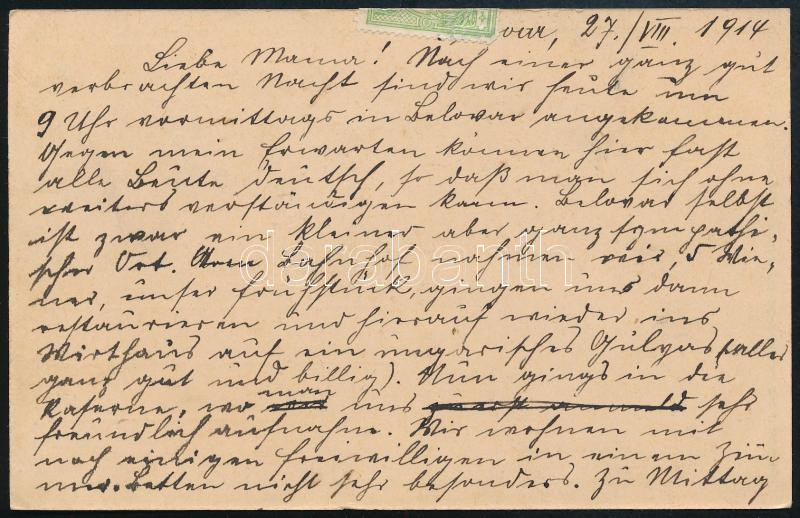 ovar, 27./VIII. 1914
Liebe Mama! Nach einer ganz gut
verbrachten Nacht sind wir heute um
9 Uhr vormittags in Belovar angekommen.
Gegen mein Erwarten können hier fast
alle Leute deutsch, so daß man sich ohne
weiters verständigen kann. Belovar selbst
ist zwar ein kleiner aber ganz sympathi-
scher Ort. Am Bahnhof nahmen wir, 5 Wie-
ner, unser Frühstück, gingen uns dann
restaurieren und hierauf wieder ins
Wirthaus auf ein ungarisches Gulyas (alles
ganz gut und billig). Nun gings in die
Kaserne, wo man uns sehr
freundlich aufnahm. Wir wohnen mit
noch einigen Freiwilligen in einem Zim-
mer. Betten nicht sehr besonders. Zu Mittag
darabanth